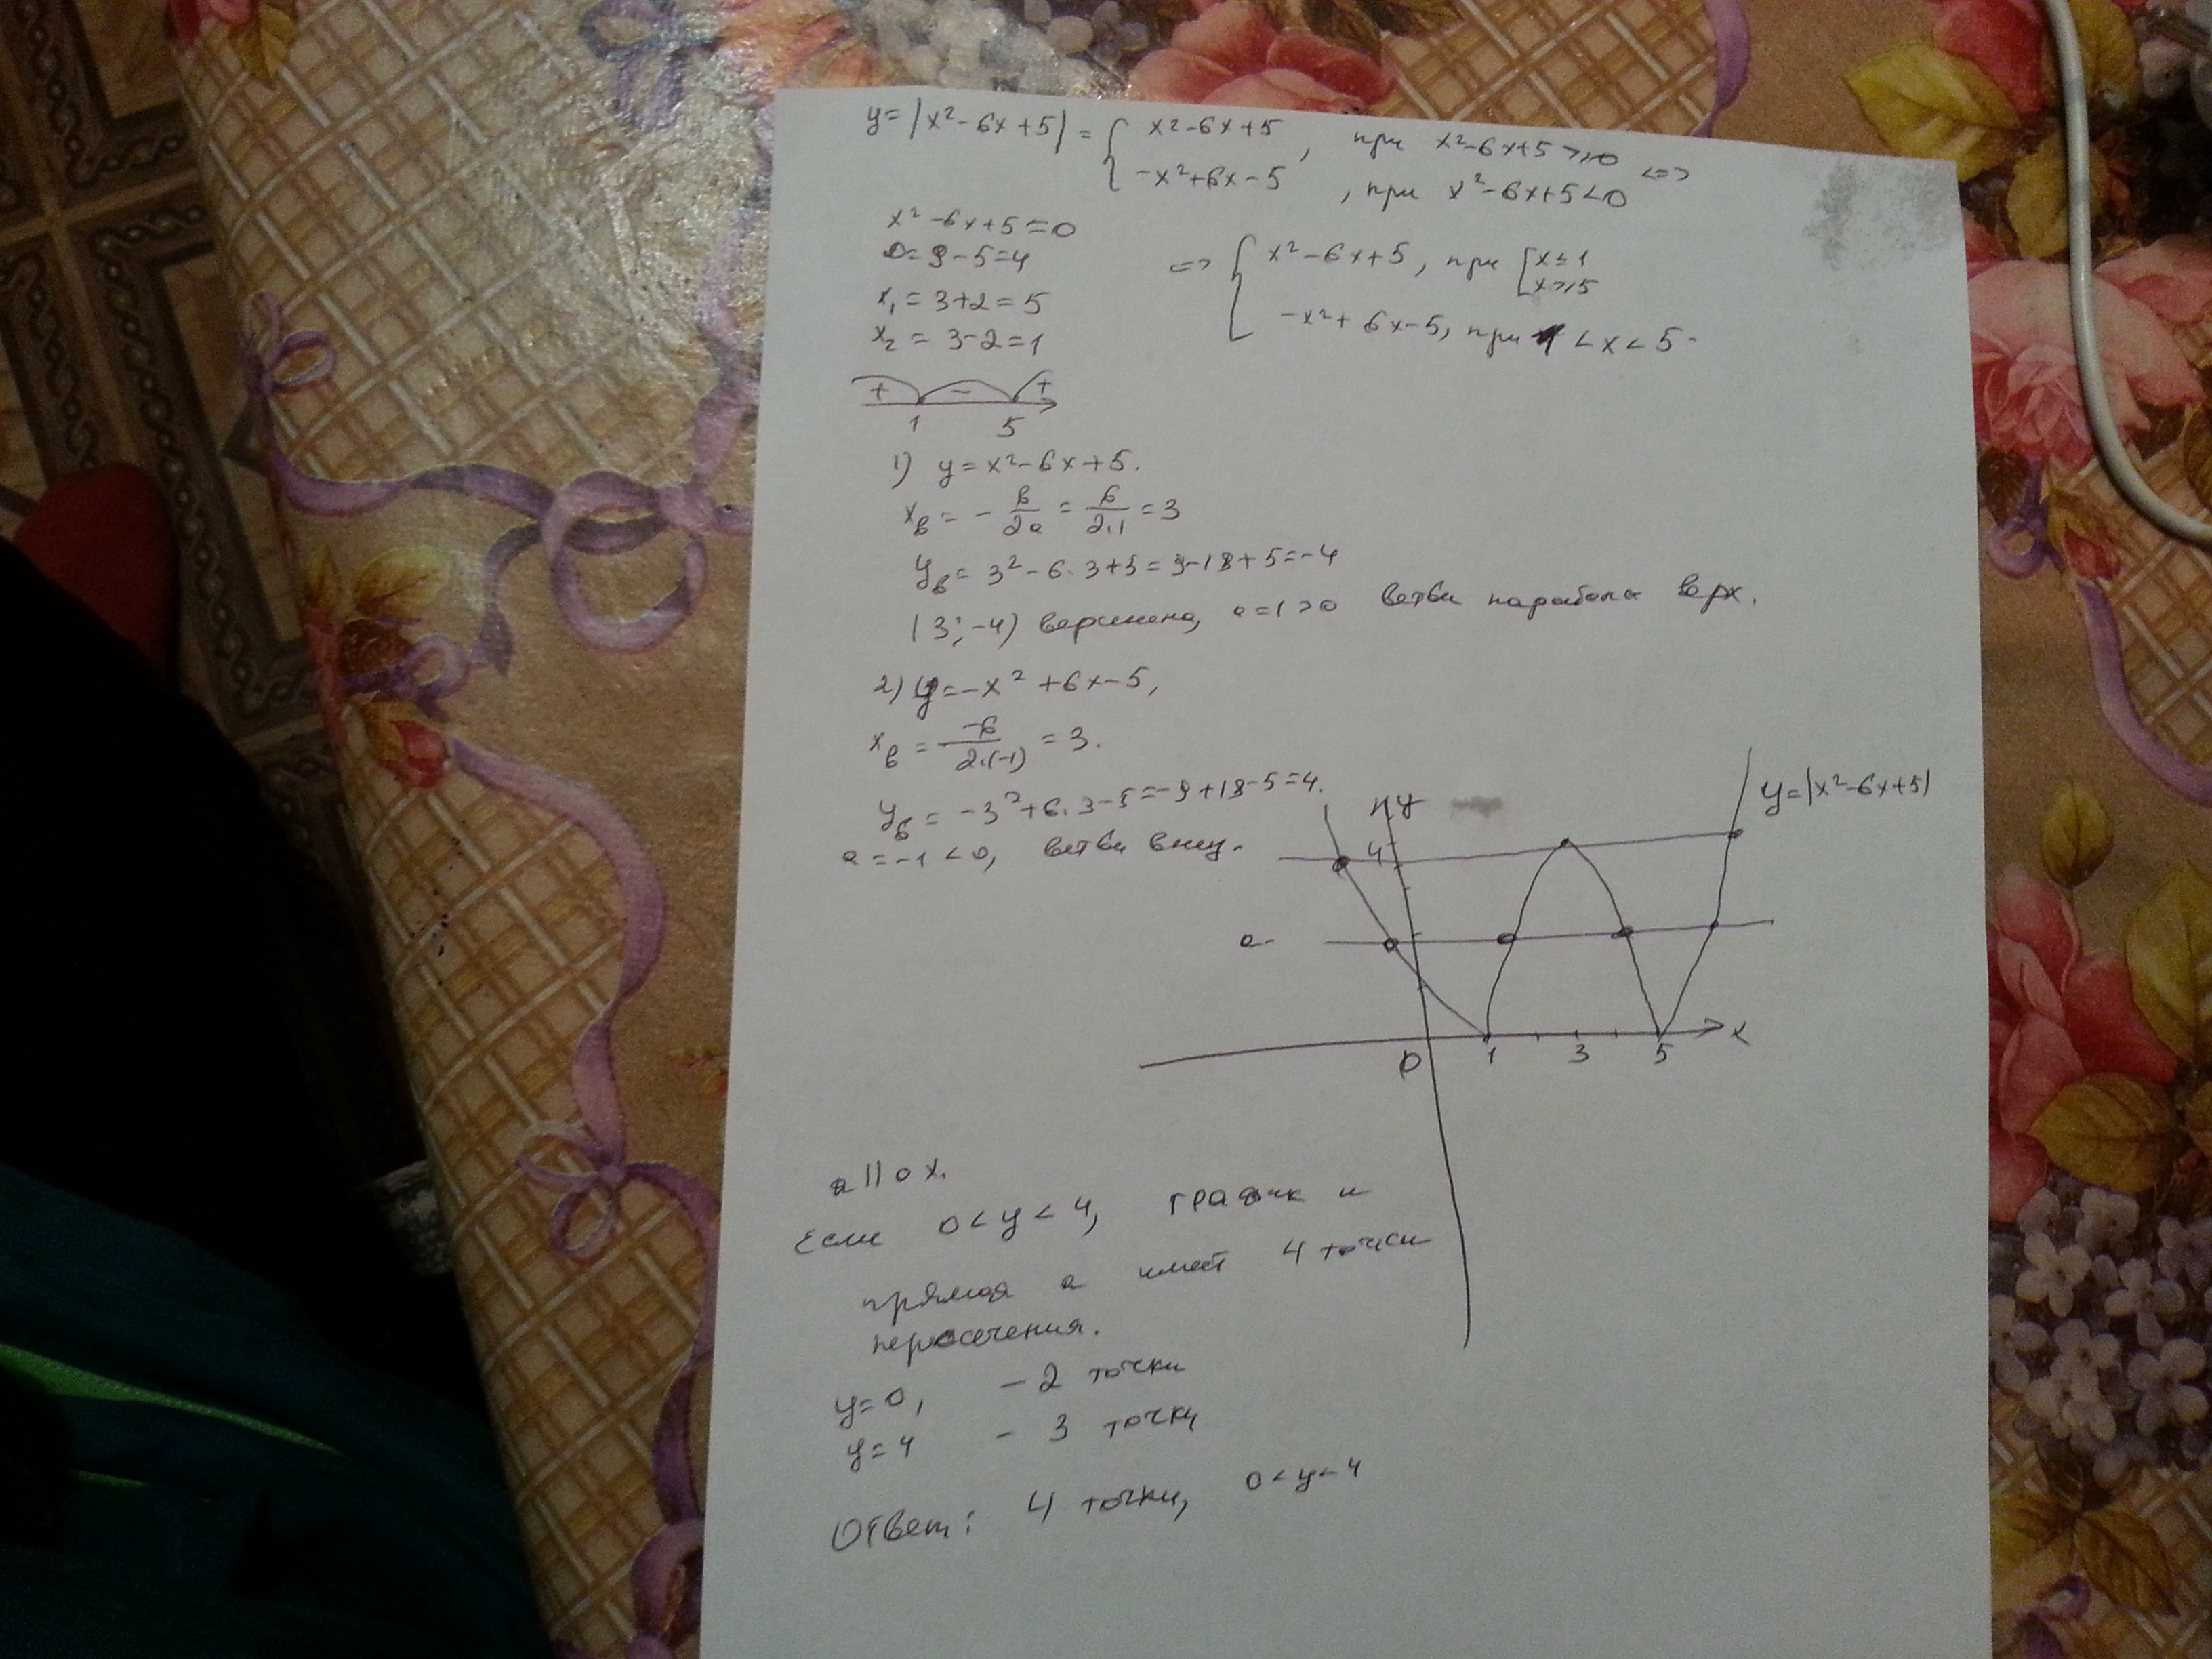 y=|x²-6x+5| = { x²-6x+5, при x²-6x+5⩾0 <=>
-x²+6x-5, при x²-6x+5<0
x²-6x+5=0
D=9-5=4
x₁=3+2=5
x₂=3-2=1
<=> { x²-6x+5, при [ x≤1
x⩾5
-x²+6x-5, при 1<x<5.
+ - +
1 5
1) y=x²-6x+5.
xв = -в/2a = 6/2·1 = 3
yв = 3²-6·3+5=9-18+5=-4
(3;-4) вершина, a=1>0 ветви параболы верх.
2) y=-x²+6x-5,
xв = -6/2·(-1) = 3.
yв = -3²+6·3-5=-9+18-5=4.
a=-1<0, ветви вниз.
y
y=|x²-6x+5|
4
a
0 1 3 5 x
a||ox.
Если 0<y<4, график и
прямая a имеет 4 точки
пересечения.
y=0, - 2 точки
y=4 - 3 точки
Ответ: 4 точки, 0<y<4